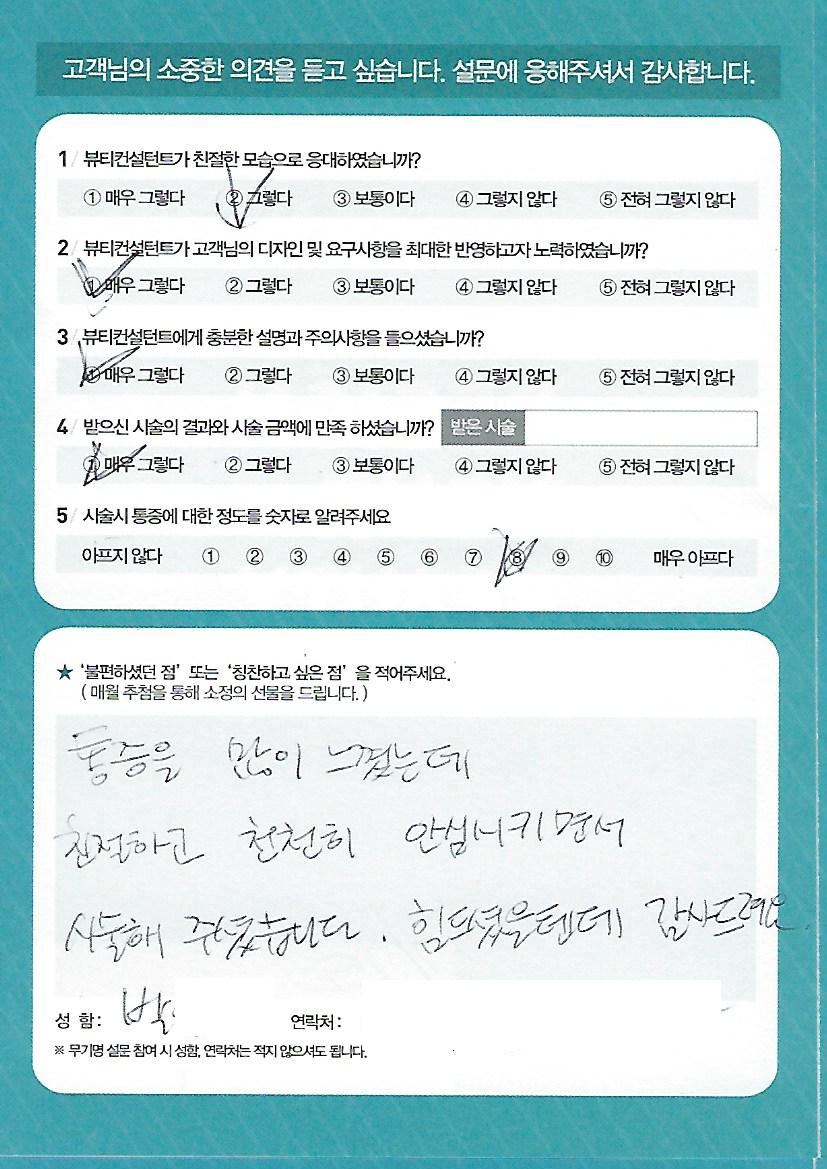 고객님의 소중한 의견을 듣고 싶습니다. 설문에 응해주셔서 감사합니다.
1 / 뷰티컨설턴트가 친절한 모습으로 응대하였습니까?
① 매우 그렇다 ② 그렇다 ③ 보통이다 ④ 그렇지 않다 ⑤ 전혀 그렇지 않다
2 / 뷰티컨설턴트가 고객님의 디자인 및 요구사항을 최대한 반영하고자 노력하였습니까?
① 매우 그렇다 ② 그렇다 ③ 보통이다 ④ 그렇지 않다 ⑤ 전혀 그렇지 않다
3 / 뷰티컨설턴트에게 충분한 설명과 주의사항을 들으셨습니까?
① 매우 그렇다 ② 그렇다 ③ 보통이다 ④ 그렇지 않다 ⑤ 전혀 그렇지 않다
4 / 받으신 시술의 결과와 시술 금액에 만족 하셨습니까? 받은 시술
① 매우 그렇다 ② 그렇다 ③ 보통이다 ④ 그렇지 않다 ⑤ 전혀 그렇지 않다
5 / 시술시 통증에 대한 정도를 숫자로 알려주세요
아프지 않다 ① ② ③ ④ ⑤ ⑥ ⑦ ⑧ ⑨ ⑩ 매우 아프다
★ '불편하셨던 점' 또는 '칭찬하고 싶은 점' 을 적어주세요.
( 매월 추첨을 통해 소정의 선물을 드립니다. )
통증을 많이 느꼈는데
친절하고 천천히 안심시키면서
시술해 주셨습니다. 힘드셨을텐데 감사드려요.
성 함 : 박
연락처 :
※ 무기명 설문 참여 시 성함, 연락처는 적지 않으셔도 됩니다.